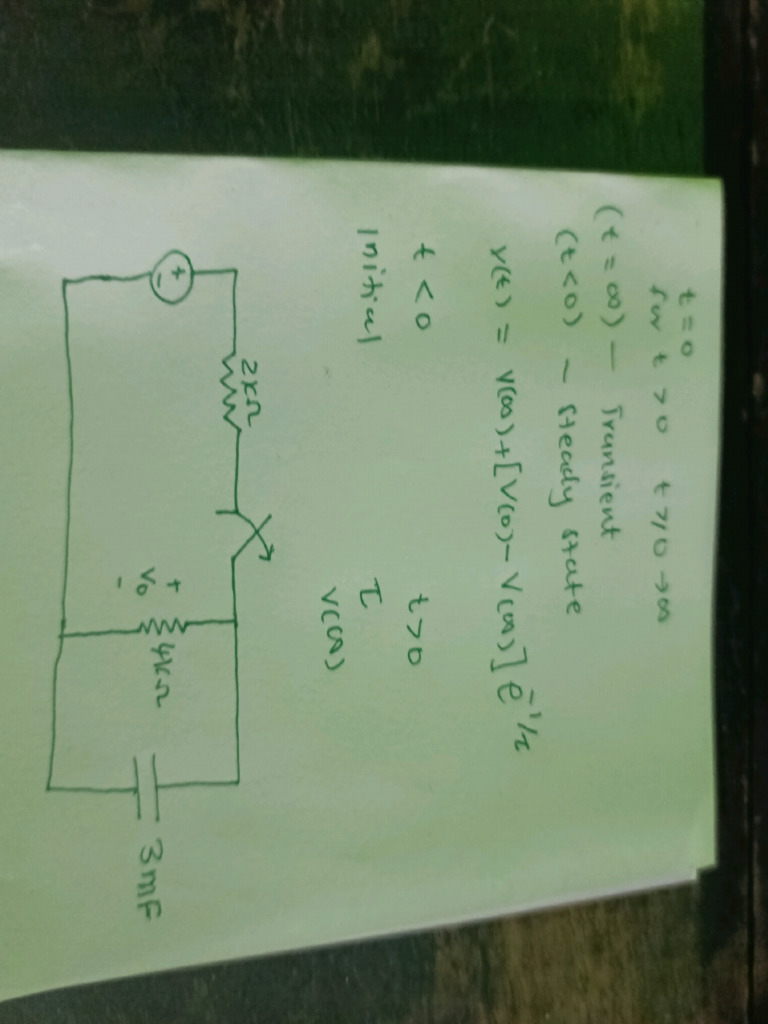 t = 0
for t > 0 t ⩾ 0 → ∞
(t = ∞) — Transient
(t < 0) — Steady state
v(t) = v(∞) + [v(0) - v(∞)] e^-1/τ
t < 0 t > 0
Initial τ
v(∞)
2kΩ
+
-
+
V₀
-
4kΩ
3mF